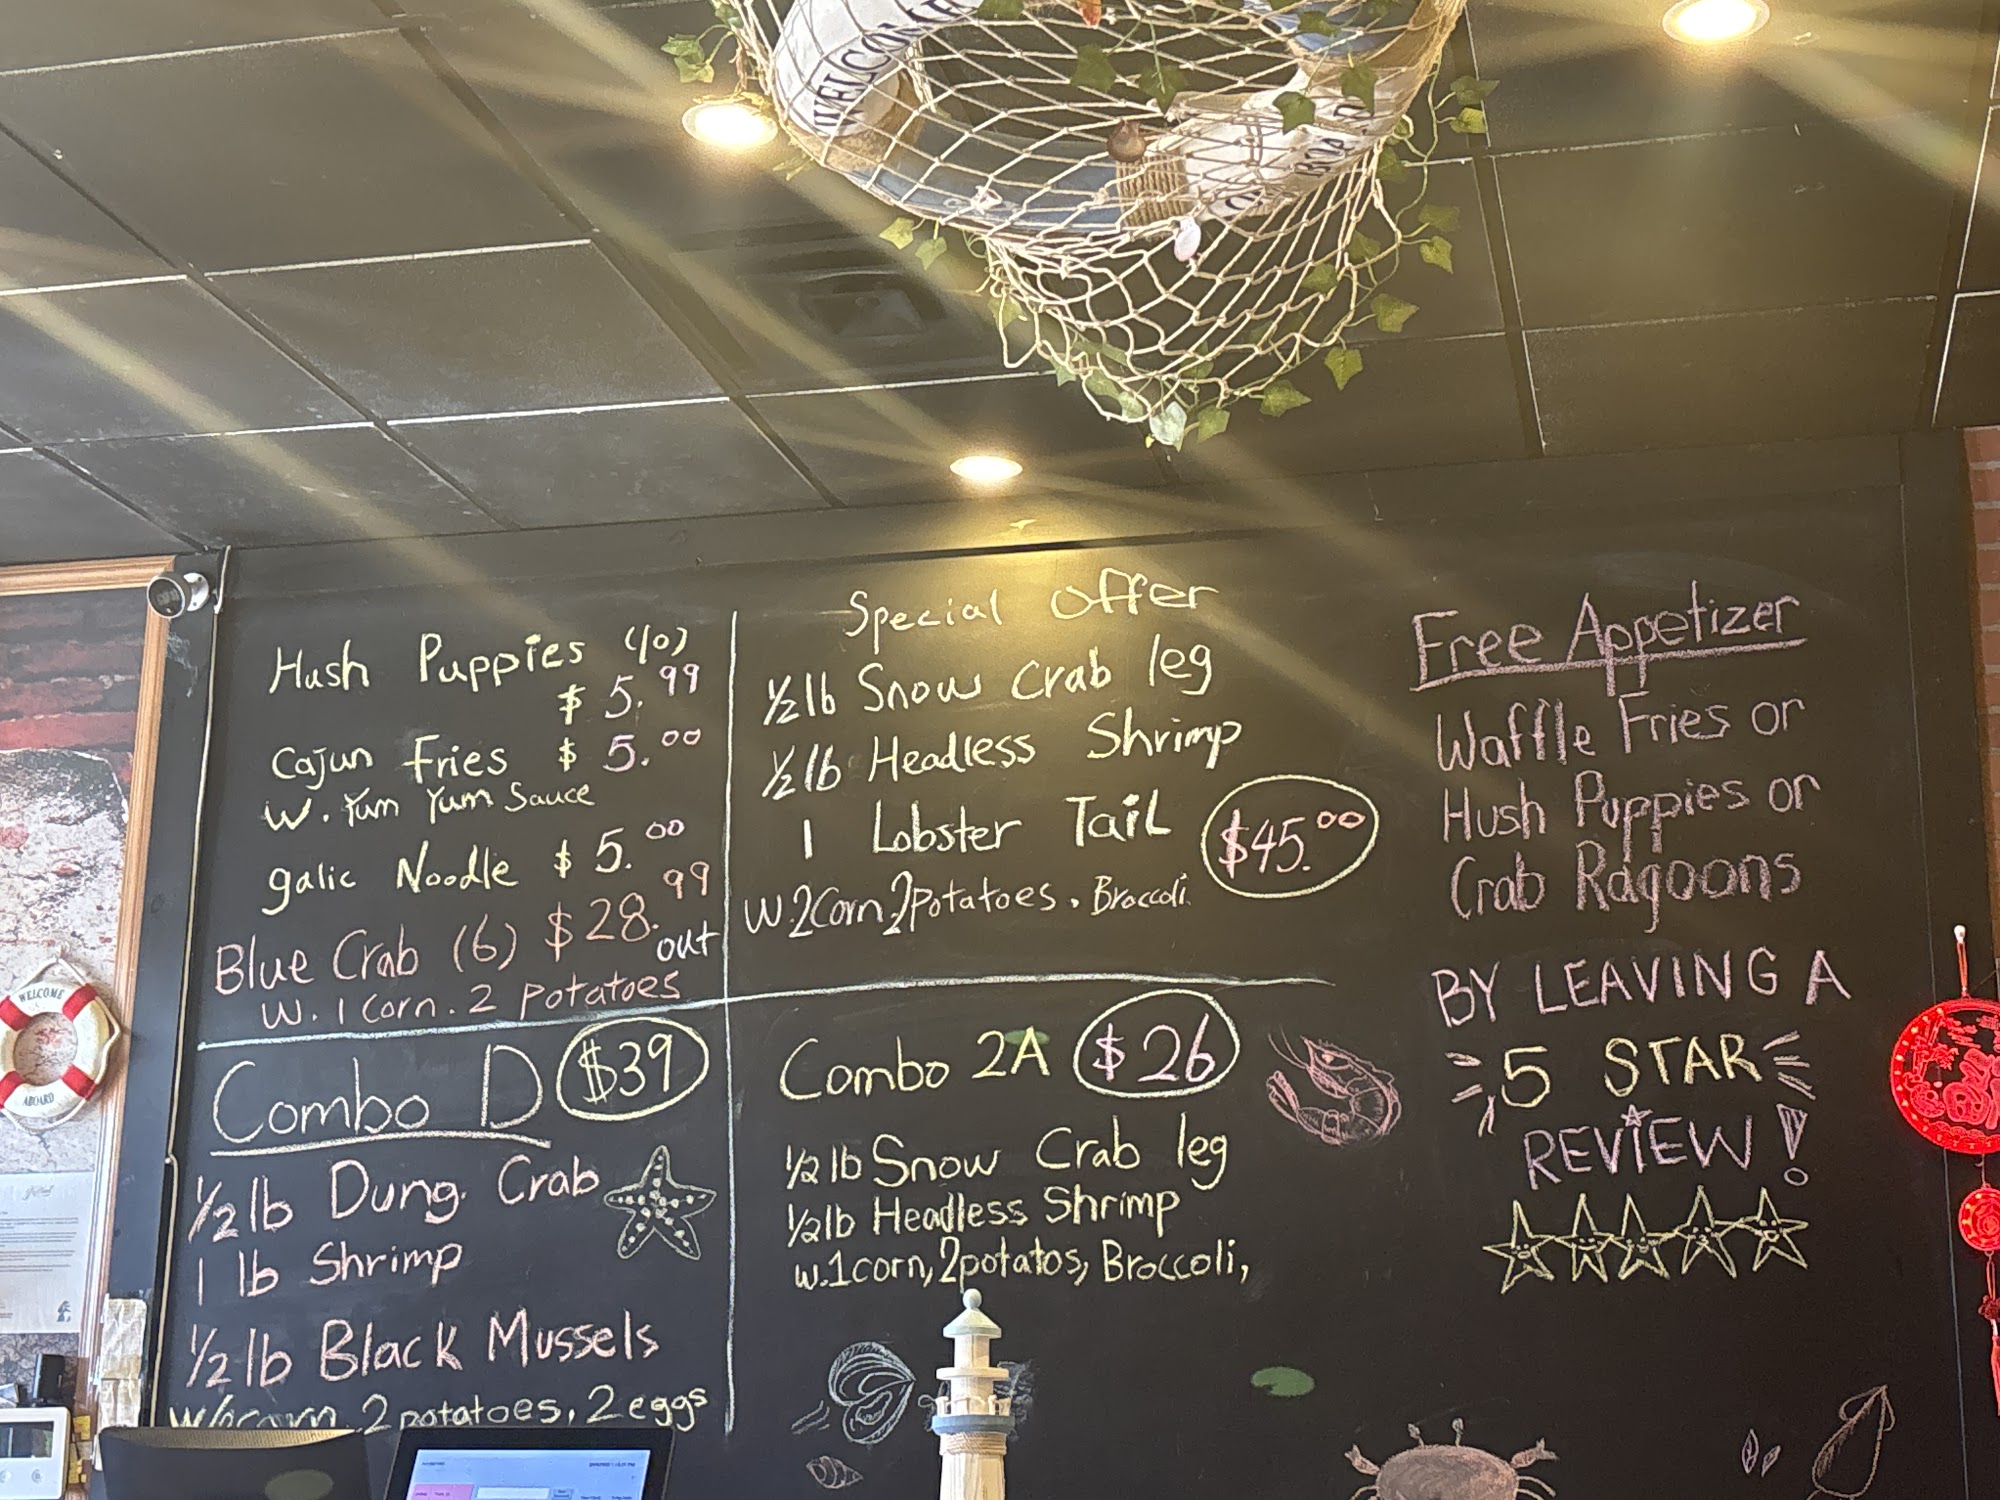 WELCOME
ON BOARD
Hush Puppies (10)
$5.99
Cajun Fries $5.00
W. Yum Yum Sauce
galic Noodle $5.00
Blue Crab (6) $28.99
out
W. 1 Corn. 2 potatoes
Combo D $39
1/2 lb Dung. Crab
1 lb Shrimp
1/2 lb Black Mussels
2 potatoes, 2 eggs
Special Offer
1/2 lb Snow Crab leg
1/2 lb Headless Shrimp
1 Lobster Tail $45.00
W. 2 Corn. 2 Potatoes. Broccoli.
Combo 2A $26
1/2 lb Snow Crab leg
1/2 lb Headless Shrimp
w. 1 corn, 2 potatos, Broccoli,
Free Appetizer
Waffle Fries or
Hush Puppies or
Crab Ragoons
BY LEAVING A
5 STAR
REVIEW!
WELCOME
ABOARD